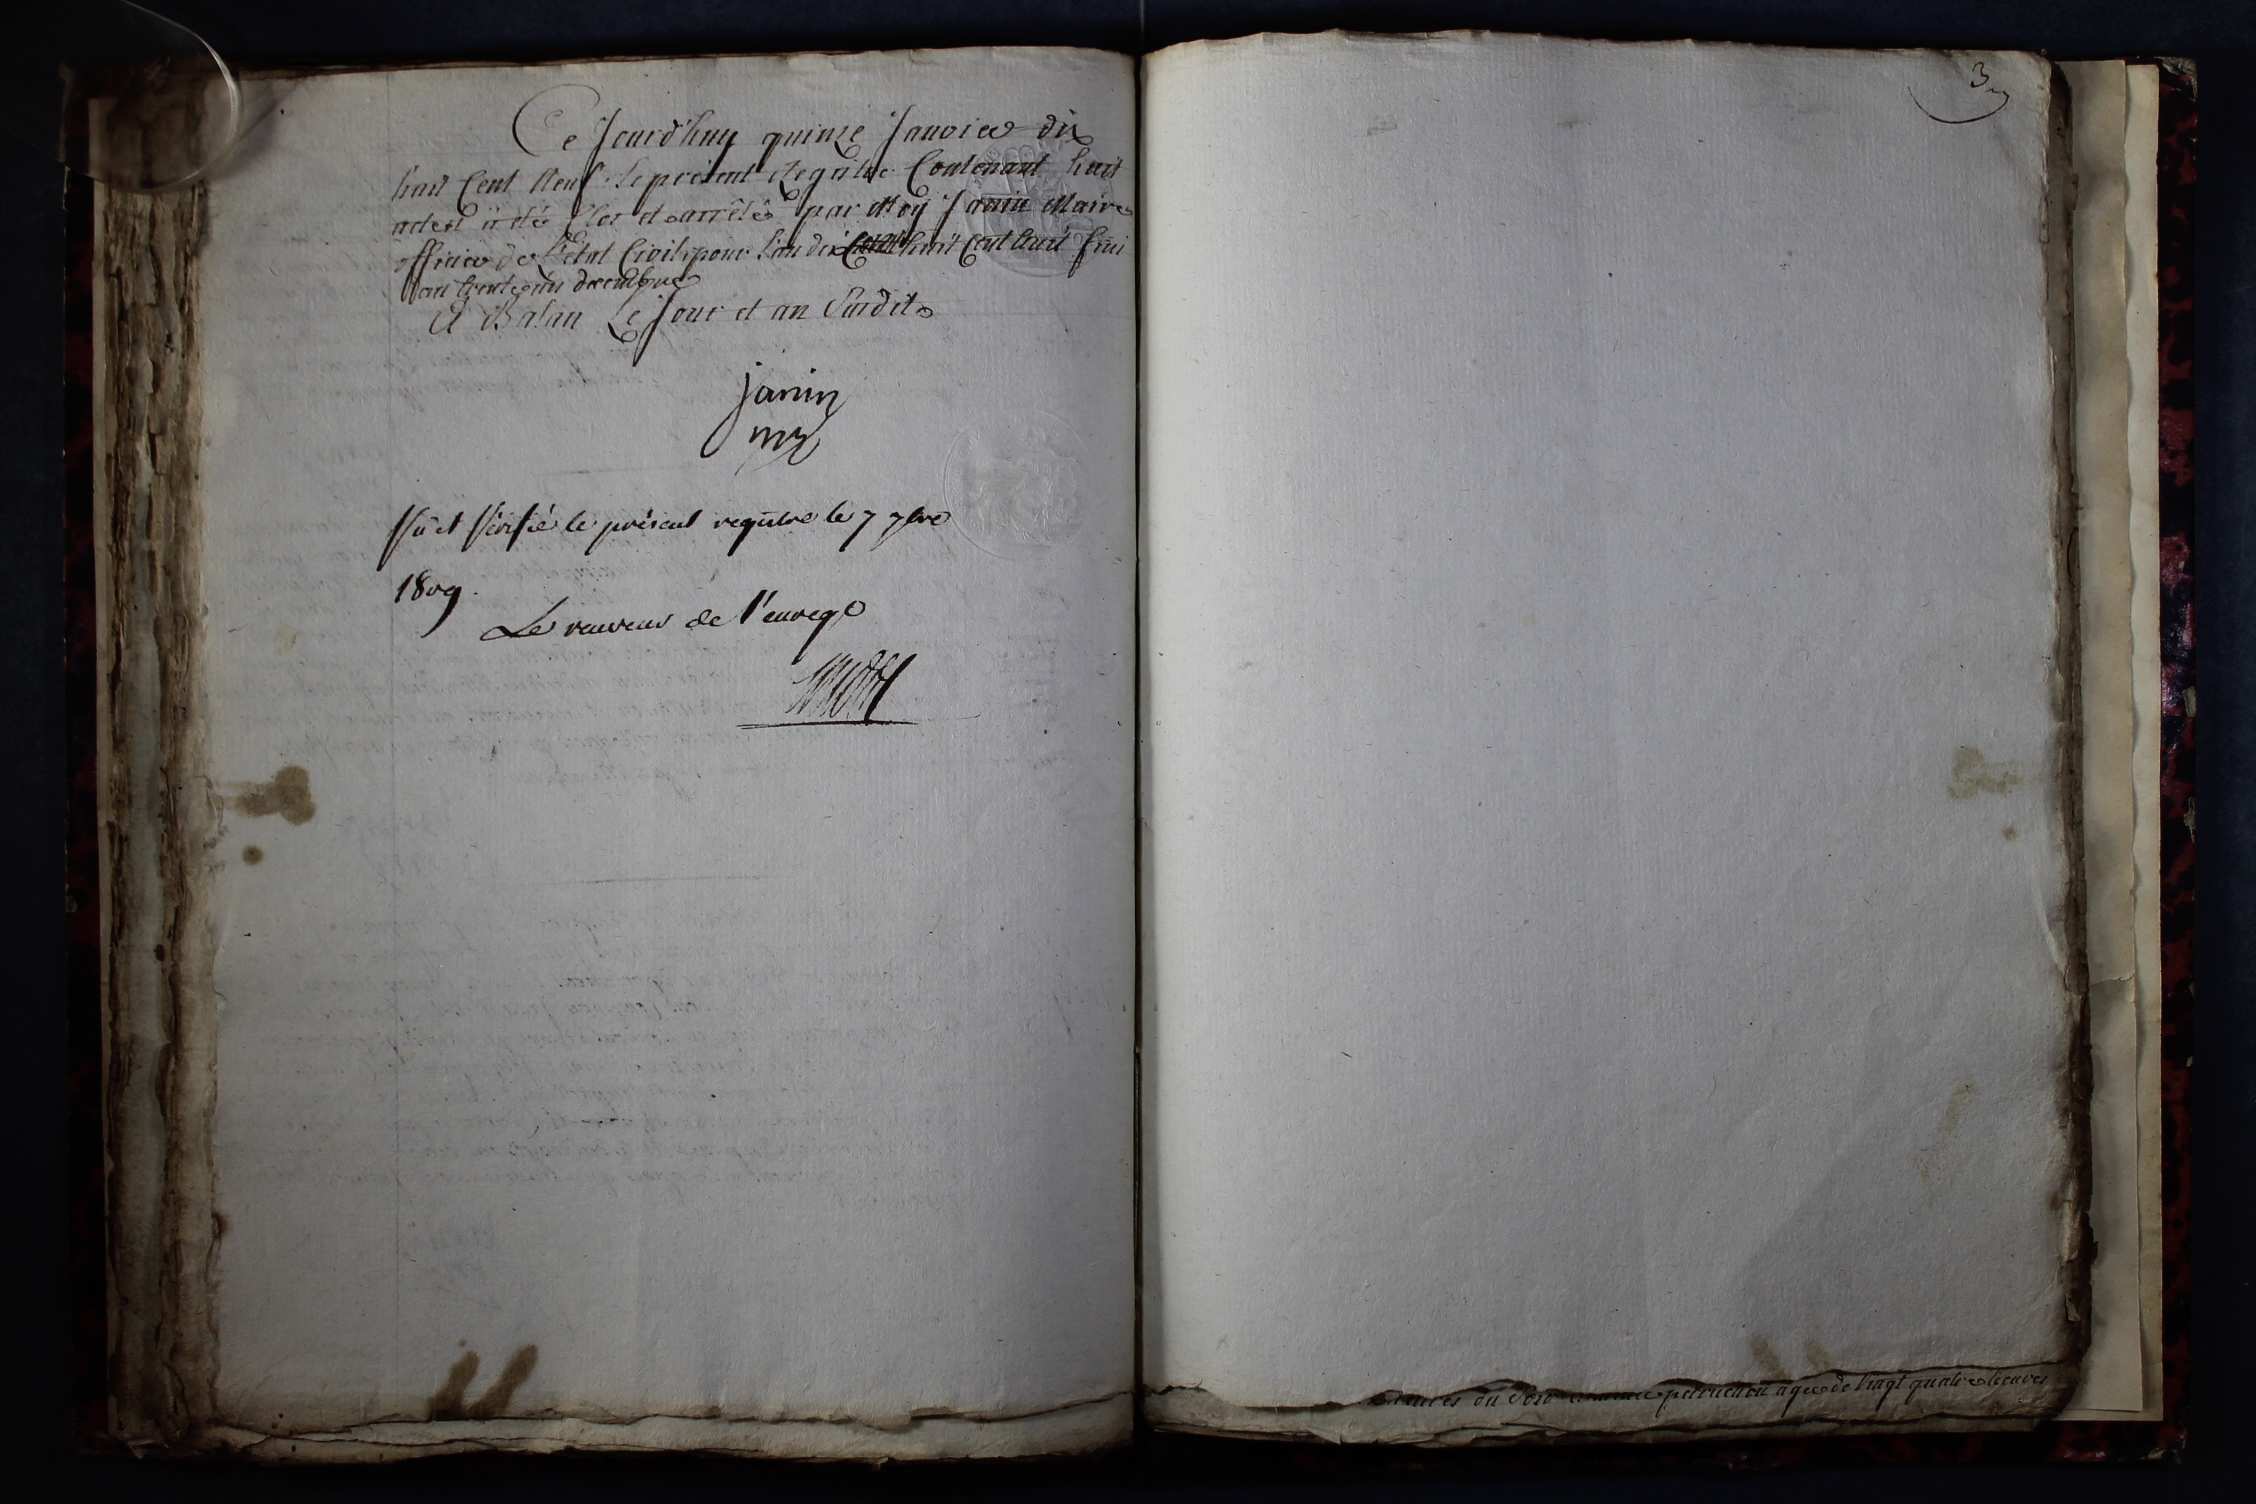 Ce Jourd'huy quinze Janvier dix
huit Cent Neuf le present Registre Contenant huit
actes à été Clos et arrêté par Moy Janin Maire
officier de L'etat Civil pour l'an dix huit Cent huit fini
au trente un decembre
A Balan Le Jour et an Susdit
janin
Vu et Vérifié le présent registre le 7 7bre
1809.
Le receveur de l'enreg
3
du Soir agée de vingt quatre heures